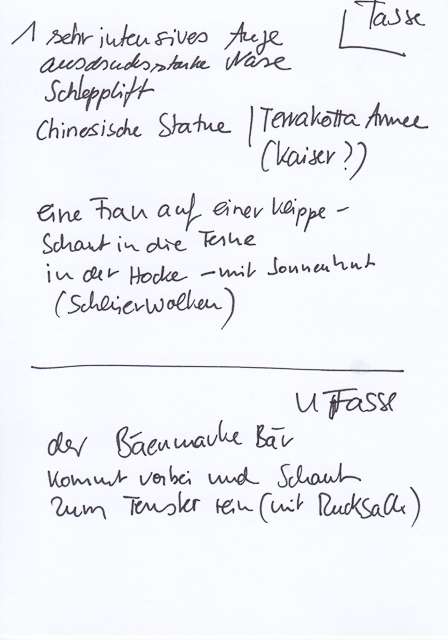 Tasse
1 sehr intensives Auge
ausdrucksstarke Nase
Schlepplift
Chinesische Statue | Terrakotta Armee
(Kaiser?)
eine Frau auf einer Klippe –
Schaut in die Ferne
in der Hocke – mit Sonnenhut
(Schleierwolken)
U Tasse
der Bärenmarke Bär
kommt vorbei und Schaut
zum Fenster rein (mit Rucksack)